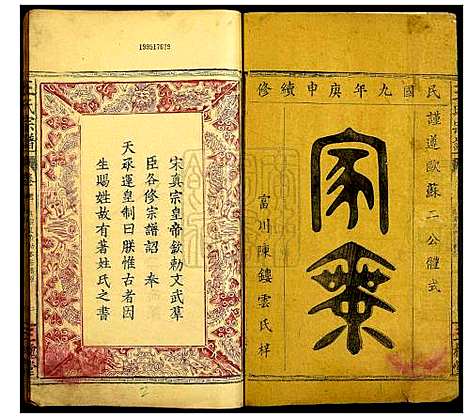 民國九年庚申續修
謹遵歐蘇二公體式
家乘
富川陳鏤雲氏梓
199517679
宋真宗皇帝敕文武羣
臣各修宗譜詔 奉
天承運皇制曰朕惟古者因
生賜姓故有著姓氏之書